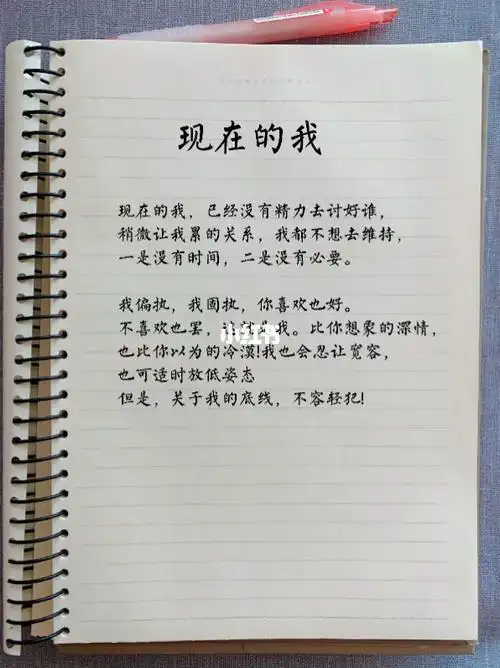 现在的我
现在的我，已经没有精力去讨好谁，
稍微让我累的关系，我都不想去维持，
一是没有时间，二是没有必要。
我偏执，我固执，你喜欢也好。
不喜欢也罢，这就是我。比你想象的深情，
也比你以为的冷漠!我也会忍让宽容，
也可适时放低姿态
但是，关于我的底线，不容轻犯!
小红书